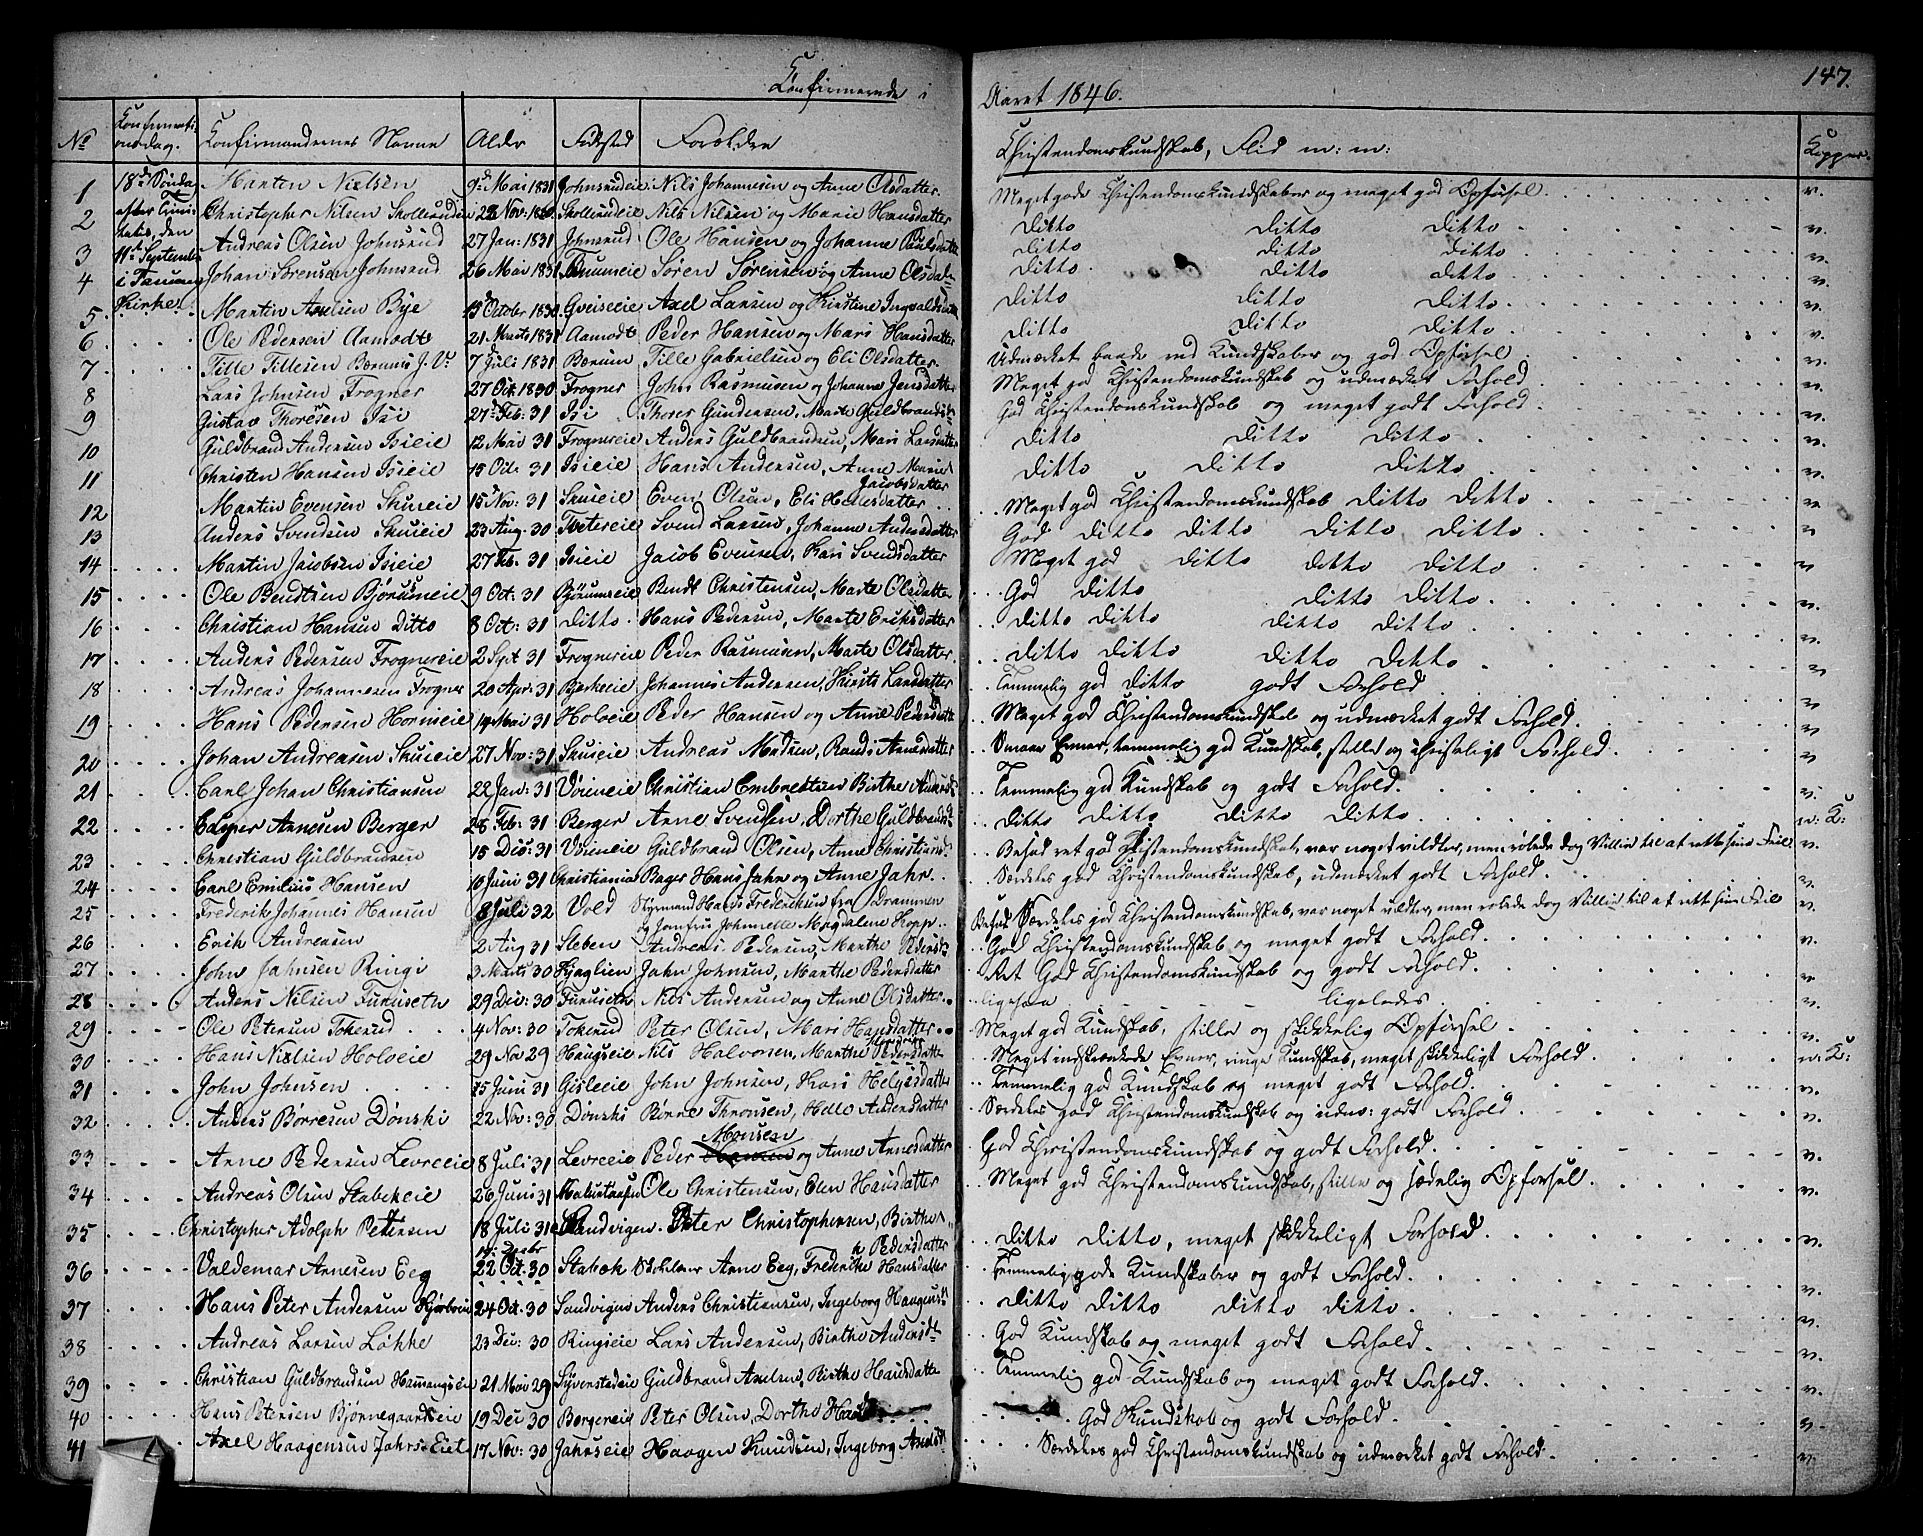 147.
Confirmerede i Aaret 1846.
No Confirmationsdag. Confirmandernes Navne Alder Fødested Forældre Christendomskundskab, Flid m: m: Kopper.
18de Sønda
efter Trini
tatis, den
11te September
i Tanum
Kirke.
1 Martin Nielsen 9de Mai 1831 Johnsrudeie Nils Johannesen og Anne Olsdatter. Meget gode Christendomskundskaber og meget god Opførsel v.
2 Christopher Nilsen Skollerudeie 22 Nov: 1830 Skollerudeie Nils Nilsen og Marie Hansdatter Ditto Ditto Ditto v.
3 Andreas Olsen Johnsrud 27 Jan: 1831 Johnsrud Ole Hansen og Johanne Paulsdatter Ditto Ditto Ditto v.
4 Johan Sørensen Johnsrud 26 Mai 1831 Tanumeie Søren Sørensen og Anne Olsdat- Ditto Ditto Ditto v.
5 Martin Axelsen Bye 15 October 1830 Axel Larsen og Kirstine Ingvaldsdatter Ditto Ditto Ditto v.
6 Ole Pedersen Aamodt 21 Marts 1831 Aamodt Peder Hansen og Mari Hansdatter Ditto Ditto Ditto v.
7 Tille Tillesen Bærums J. V. 7 Juli 1831 Bærum Tille Gabrielsen og Eli Olsdatter. Udmærket baade ved Kundskaber og god Opførsel v.
8 Lars Johnsen Frogner 27 Oct 1830 Frogner John Rasmusen og Johanne Jensdatter Meget god Christendomskundskab og udmærket Forhold v.
9 Gustav Thoresen Isi 27 Feb. 31 Isi Thorer Gundersen, Marte Guldbrandsd God Christendomskundskab og meget godt Forhold v.
10 Guldbrand Andersen Isieie 12 Mai 31 Frognereie Anders Guldbrandsen, Mari Larsdatter Ditto Ditto Ditto v.
11 Christen Hansen Isieie 15 Oct. 31 Isieie Hans Andersen, Anne Marie Jacobsdatter Ditto Ditto Ditto v.
12 Martin Evensen Skuieie 15 Nov: 31 Skuieie Even Olsen, Eli Hellesdatter Meget god Christendomskundskab Ditto Ditto v.
13 Anders Svendsen Skuieie 23 Aug. 30 Tvetereie Svend Larsen, Johanne Andersdatter God Ditto Ditto Ditto Ditto v
14 Martin Jacobsen Isieie 27 Feb. 31 Isieie Jacob Evensen, Kari Svendsdatter Meget god Ditto Ditto Ditto v
15 Ole Bendtsen Bjørumeie 9 Oct: 31 Bjørumseie Bendt Christensen, Marte Olsdatter God Ditto Ditto Ditto v.
16 Christian Hansen Ditto 8 Oct: 31 Ditto Hans Pedersen, Marte Eriksdatter Ditto Ditto Ditto Ditto v.
17 Anders Pedersen Frognereie 2 Sept 31 Frognereie Peder Rasmusen, Marte Olsdatter. Ditto Ditto Ditto Ditto v
18 Andreas Johannesen Frogner 20 Apr: 31 Berkeeie Johannes Andersen, Kirsti Larsdatter Temmelig god Ditto godt Forhold v
19 Hans Pedersen Hornieie 14 Mai 31 Holveie Peder Hansen og Anne Pedersdatter Meget god Christendomskundskab og udmærket godt Forhold. v
20 Johan Andreasen Skuieie 27 Nov: 31 Skuieie Andreas Madsen, Randi Arnesdatter Smaae Evner, temmelig god Kundskab, stille og christeligt Forhold. v
21 Carl Johan Christiansen 22 Jan: 31 Vøieneie Christian Embretsen Birthe Andersd: Temmelig god Kundskab og godt Forhold. v.
22 Casper Arnesen Berger 28 Feb: 31 Berger Arne Svendsen, Dorthe Guldbrandsd: Ditto Ditto Ditto Ditto v: K:
23 Christian Guldbrandsen 15 Dec: 31 Vøieneie Guldbrand Olsen, Anne Christiansd: Besad ret god Christendomskundskab, var noget vildter, men røbede dog Villie til at rette sine Feil v.
24 Carl Emilius Hansen 10 Juni 31 Christiania Bager Hans Jahr og Anne Jahr. Særdeles god Christendomskundskab, udmærket godt Forhold. v.
25 Frederik Johannes Hansen 8 Juli 32 Vold Styrmand Hans Frederiksen fra Drammen og Jomfru Johannette Magdalene Hopp. Besad Særdeles god Christendomskundskab, var noget vildter, men røbede dog Villie til at rette sine Feil v.
26 Erik Andreasen 2 Aug 31 Sleben Andreas Pedersen, Marthe Pedersd: God Christendomskundskab og meget godt Forhold. v.
27 John Jahnsen Ringi 3 Marts 30 John Johnsen, Marthe Pedersdatter Ret God Christendomskundskab og godt Forhold. v
28 Anders Nilsen Furuseth 29 Dec: 30 Furuseth Nils Andersen og Anne Olsdatter. ligesaa ligeledes v.
29 Ole Petersen Tokerud 4 Nov: 30 Tokerud Peter Olsen, Mari Hansdatter. Meget god Kundskab, stille og skikkelig Opførsel v.
30 Hans Nielsen Holveie 29 Nov 29 Haugseie Nils Halvorsen, Marthe Pedersdatter Meget indskrænkede Evner, ringe Kundskab, meget skikkeligt Forhold. v: K:
31 John Johnsen 15 Juni 31 Gisleeie John Johnsen, Kari Helgesdatter Temmelig god Kundskab og meget godt Forhold. v.
32 Anders Børresen Dønski 22 Nov: 30 Dønski Børre Thronsen, Helle Andersdatter Særdeles god Christendomskundskab og udm: godt Forhold v.
33 Arne Pedersen Levreeie 8 Juli 31 Levreeie Peder Monsen og Anne Arnesdatter God Christendomskundskab og godt Forhold. v.
34 Andreas Olsen Stabekeie 26 Juni 31 Ole Christensen, Elen Hansdatter Meget god Christendomskundskab, stille og sædelig Opførsel. v.
35 Christopher Adolph Petersen 18 Juli 31 Sandvigen. Peter Christophersen, Birthe Pedersdatter Ditto Ditto, meget skikkeligt Forhold. v.
36 Valdemar Arnesen Eeg 22 Oct: 30 Stabæk Skolelærer Arne Eeg, Frederikke Hansdatter Temmelig gode Kundskaber og godt Forhold. v.
37 Hans Peter Andersen Kjørboeie 24 Oct. 30 Sandvigen Anders Christiansen, Ingeborg Haagensd: Ditto Ditto Ditto Ditto. v.
38 Andreas Larsen Løkke 23 Dec: 30 Ringieie Lars Andersen, Birthe Andersdt God Kundskab og meget godt Forhold. v.
39 Christian Guldbrandsen Hamangseie 21 Mai 29 Syverstadeie Guldbrand Axelsen, Birthe Hansdatter Temmelig god Kundskab og meget godt Forhold. v.
40 Hans Petersen Bjørnegaardseie 19 Dec 30 Bergereie Peter Olsen, Dorthe God Kundskab og godt Forhold. v
41 Axel Haagensen Jahrs-Eiet 17 Nov: 30 Jahrseie Haagen Knudsen, Ingeborg Axelsd: Særdeles god Christendomskundskab og udmærket godt Forhold. v.